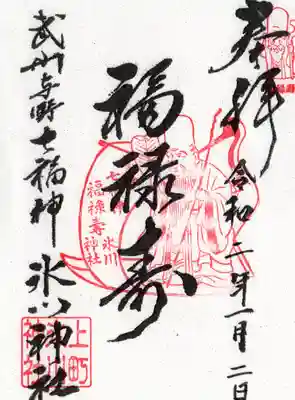 奉拝
令和二年一月二日
福禄寿
七福神
福禄寿 氷川神社
武州与野七福神 氷川神社
上町氷川神社